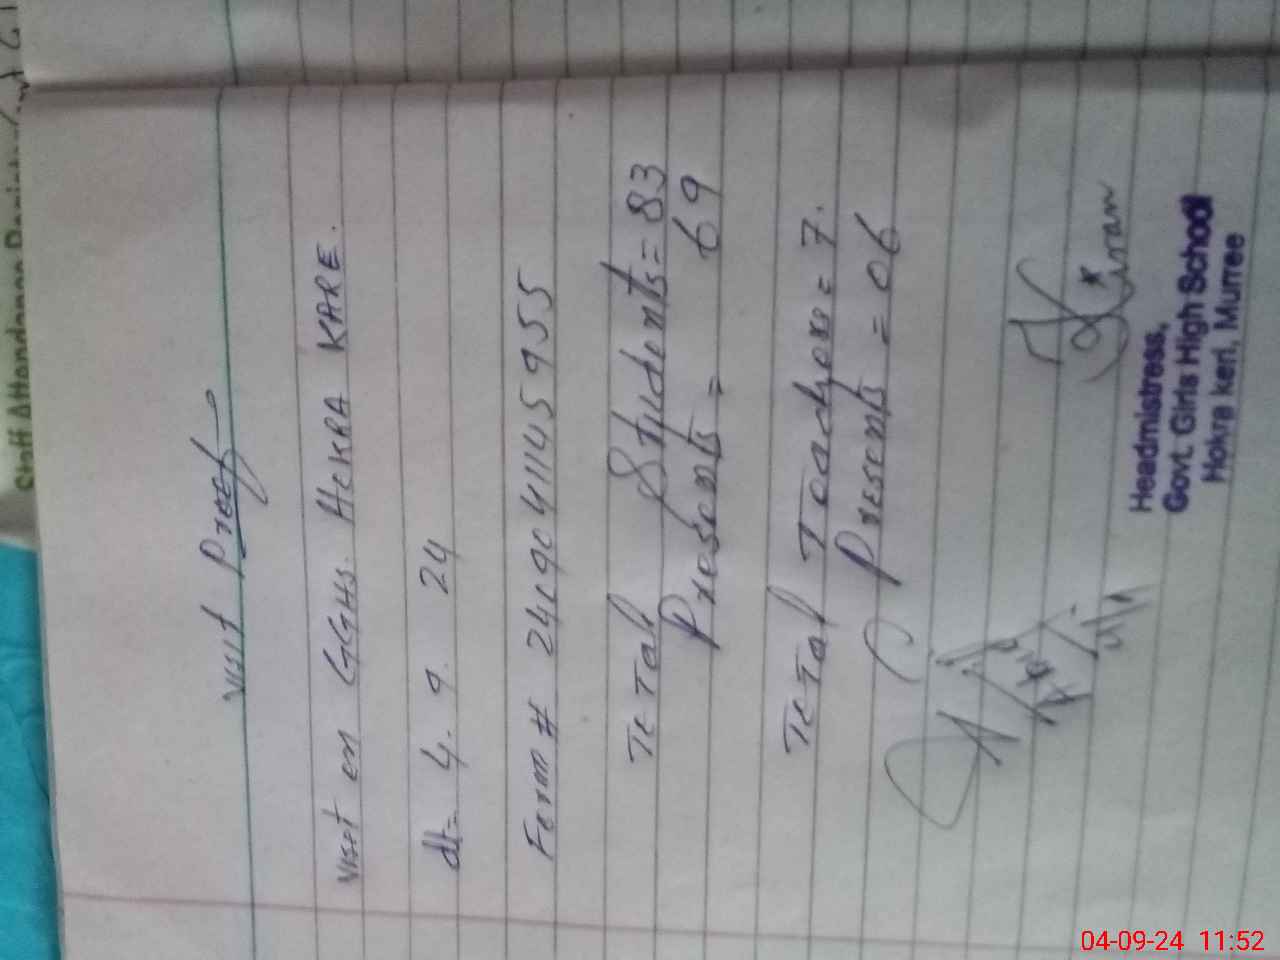 Staff Attendance Register
Visit Proof
Visit on GGHS. HOKRA KARE.
dt= 4. 9. 24
Form # 24090411145955
Total Students = 83
Presents = 69
Total Teachers = 7.
Presents = 06
Kiran
Headmistress,
Govt. Girls High School
Hokra keri, Murree
04-09-24 11:52